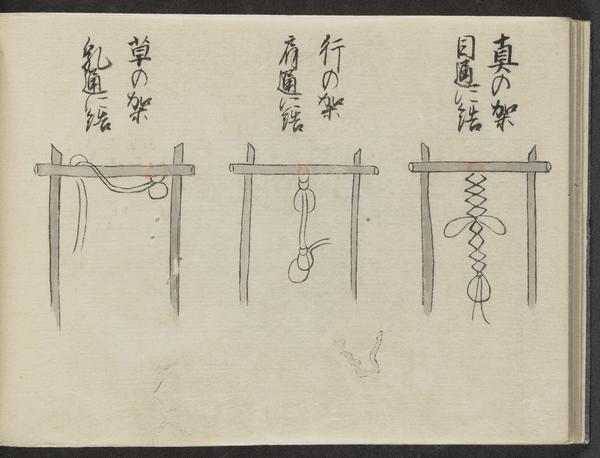 真の架
目通に結
行の架
肩通に結
草の架
乳通に結